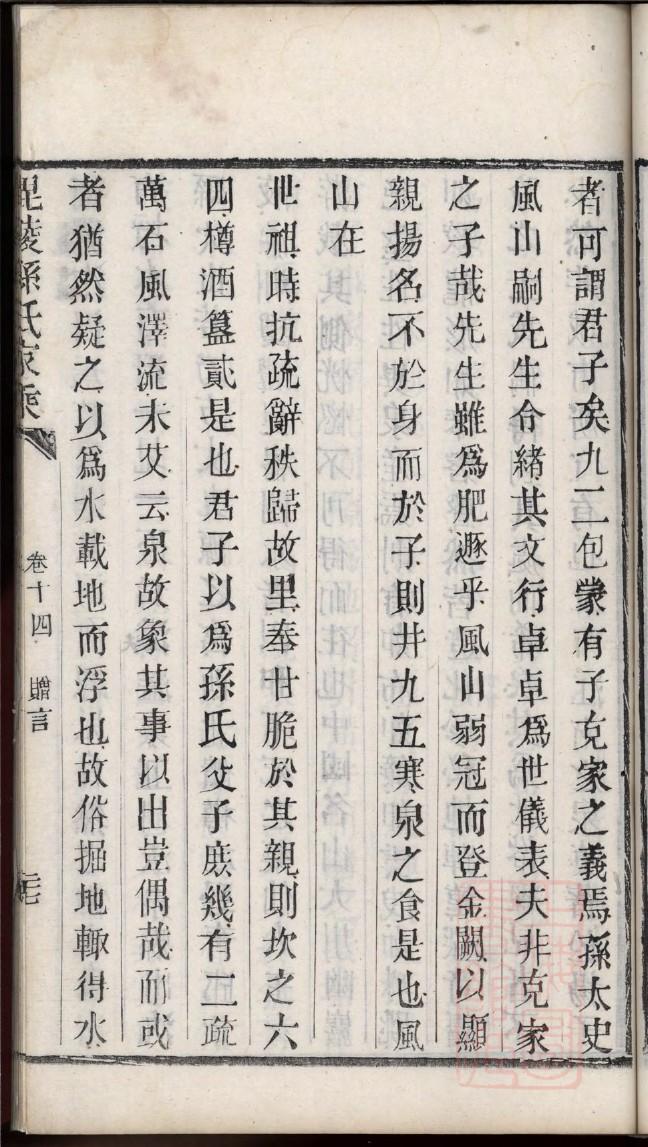 者可謂君子矣九二包蒙有子克家之義焉孫太史
風山嗣先生令緒其文行卓卓爲世儀表夫非克家
之子哉先生雖爲肥遯乎風山弱冠而登金闕以顯
親揚名不於身而於子則井九五寒泉之食是也風
山在
世祖時抗疏辭秩歸故里奉甘脆於其親則坎之六
四樽酒簋貳是也君子以爲孫氏父子庶幾有二疏
萬石風澤流未艾云泉故象其事以出豈偶哉而或
者猶然疑之以爲水載地而浮也故俗掘地輙得水
毘陵孫氏家乘
卷十四 贈言
二七